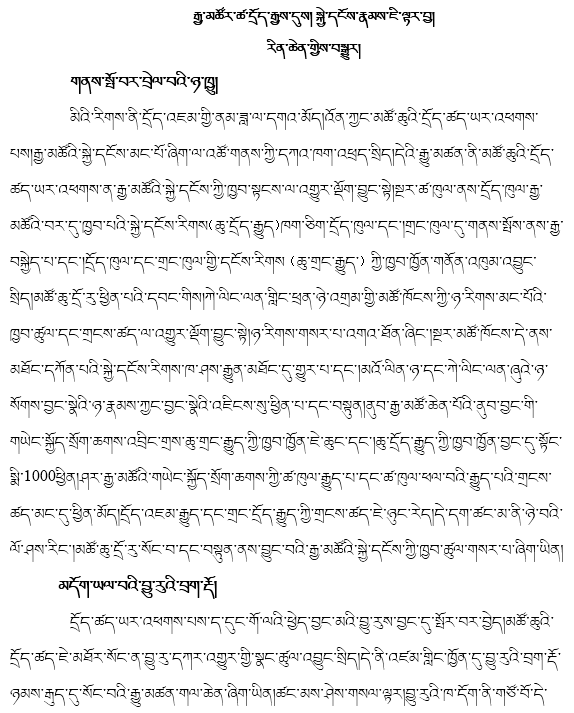 རྒྱ་མཚོར་ཚ་དྲོད་རྒྱས་དུས། སྐྱེ་དངོས་རྣམས་ཇི་ལྟར་བྱ།
རིན་ཆེན་གྱིས་བསྒྱུར།
གནས་སྤོ་བར་བྲེལ་བའི་ཉ་ཁྱུ།
མིའི་རིགས་ནི་དྲོད་འཇམ་གྱི་ནམ་ཟླ་ལ་དགའ་མོད།འོན་ཀྱང་མཚོ་ཆུའི་དྲོད་ཚད་ཡར་འཕགས་
པས།རྒྱ་མཚོའི་སྐྱེ་དངོས་མང་པོ་ཞིག་ལ་འཚོ་གནས་ཀྱི་དཀའ་ཁག་འཕྲད་སྲིད།དེའི་རྒྱུ་མཚན་ནི་མཚོ་ཆུའི་དྲོད་
ཚད་ཡར་འཕགས་ན་རྒྱ་མཚོའི་སྐྱེ་དངོས་ཀྱི་ཁྱབ་སྟངས་ལ་འགྱུར་ལྡོག་བྱུང་སྟེ།སྔར་ཚ་ཁུལ་ནས་དྲོད་ཁུལ་རྒྱ་
མཚོའི་བར་དུ་ཁྱབ་པའི་སྐྱེ་དངོས་རིགས(ཆུ་དྲོད་རྒྱུད)ཁག་ཅིག་དྲོད་ཁུལ་དང་།གྲང་ཁུལ་དུ་གནས་སྤོས་ནས་རྒྱ་
བསྐྱེད་པ་དང་།དྲོད་ཁུལ་དང་གྲང་ཁུལ་གྱི་དངོས་རིགས (ཆུ་གྲང་རྒྱུད་) ཀྱི་ཁྱབ་ཁྱོན་གནོན་འཁུམ་འབྱུང་
སྲིད།མཚོ་ཆུ་དྲོ་རུ་ཕྱིན་པའི་དབང་གིས།ཀེ་ལིང་ལན་གླིང་ཕྲན་ཉེ་འགྲམ་གྱི་མཚོ་ཁོངས་ཀྱི་ཉ་རིགས་མང་པོའི་
ཁྱབ་ཚུལ་དང་གྲངས་ཚད་ལ་འགྱུར་ལྡོག་བྱུང་སྟེ།ཉ་རིགས་གསར་པ་འགའ་ཐོན་ཞིང་།སྔར་མཚོ་ཁོངས་དེ་ནས་
མཐོང་དཀོན་པའི་སྐྱེ་དངོས་རིགས་ཁ་ཤས་རྒྱུན་མཐོང་དུ་གྱུར་པ་དང་།མའོ་ལིན་ཉ་དང་ཀེ་ལིང་ལན་ཞུའེ་ཉ་
སོགས་བྱང་སྣེའི་ཉ་རྣམས་ཀྱང་བྱང་སྣེའི་འཇིངས་སུ་ཕྱིན་པ་དང་བསྟུན།ནུབ་རྒྱ་མཚོ་ཆེན་པོའི་ནུབ་བྱང་གི་
གཡེང་སྐྱོད་སྲོག་ཆགས་འབྲིང་གྲས་ཆུ་གྲང་རྒྱུད་ཀྱི་ཁྱབ་ཁྱོན་ཇེ་ཆུང་དང་།ཆུ་དྲོད་རྒྱུད་ཀྱི་ཁྱབ་ཁྱོན་བྱང་དུ་སྟོང་
སྨི་1000ཕྱིན།ཤར་རྒྱ་མཚོའི་གཡེང་སྐྱོད་སྲོག་ཆགས་ཀྱི་ཚ་ཁུལ་རྒྱུད་པ་དང་ཚ་ཁུལ་ཕལ་བའི་རྒྱུད་པའི་གྲངས་
ཚད་མང་དུ་ཕྱིན་མོད།དྲོད་འཇམ་རྒྱུད་དང་གྲང་དྲོད་རྒྱུད་ཀྱི་གྲངས་ཚད་ཇེ་ཉུང་རེད།དེ་དག་ཚང་མ་ནི་ཉེ་བའི་
ལོ་ཤས་རིང་།མཚོ་ཆུ་དྲོ་རུ་སོང་བ་དང་བསྟུན་ནས་བྱུང་བའི་རྒྱ་མཚོའི་སྐྱེ་དངོས་ཀྱི་ཁྱབ་ཚུལ་གསར་པ་ཞིག་ཡིན།
མདོག་ཡལ་བའི་བྱུ་རུའི་བྲག་རྡོ།
དྲོད་ཚད་ཡར་འཕགས་པས་ད་དུང་གོ་ལའི་ཕྱེད་བྱང་མའི་བྱུ་རུས་བྱང་དུ་སྤོར་བར་བྱེད།མཚོ་ཆུའི་
དྲོད་ཚད་ཇེ་མཐོར་སོང་ན་བྱུ་རུ་དཀར་འགྱུར་གྱི་སྣང་ཚུལ་འབྱུང་སྲིད།དེ་ནི་འཛམ་གླིང་ཁྱོན་དུ་བྱུ་རུའི་བྲག་རྡོ་
ཉམས་རྒུད་དུ་སོང་བའི་རྒྱུ་མཚན་གལ་ཆེན་ཞིག་ཡིན།ཚང་མས་ཤེས་གསལ་ལྟར།བྱུ་རུའི་ཁ་དོག་ནི་གཙོ་བོ་དེ་